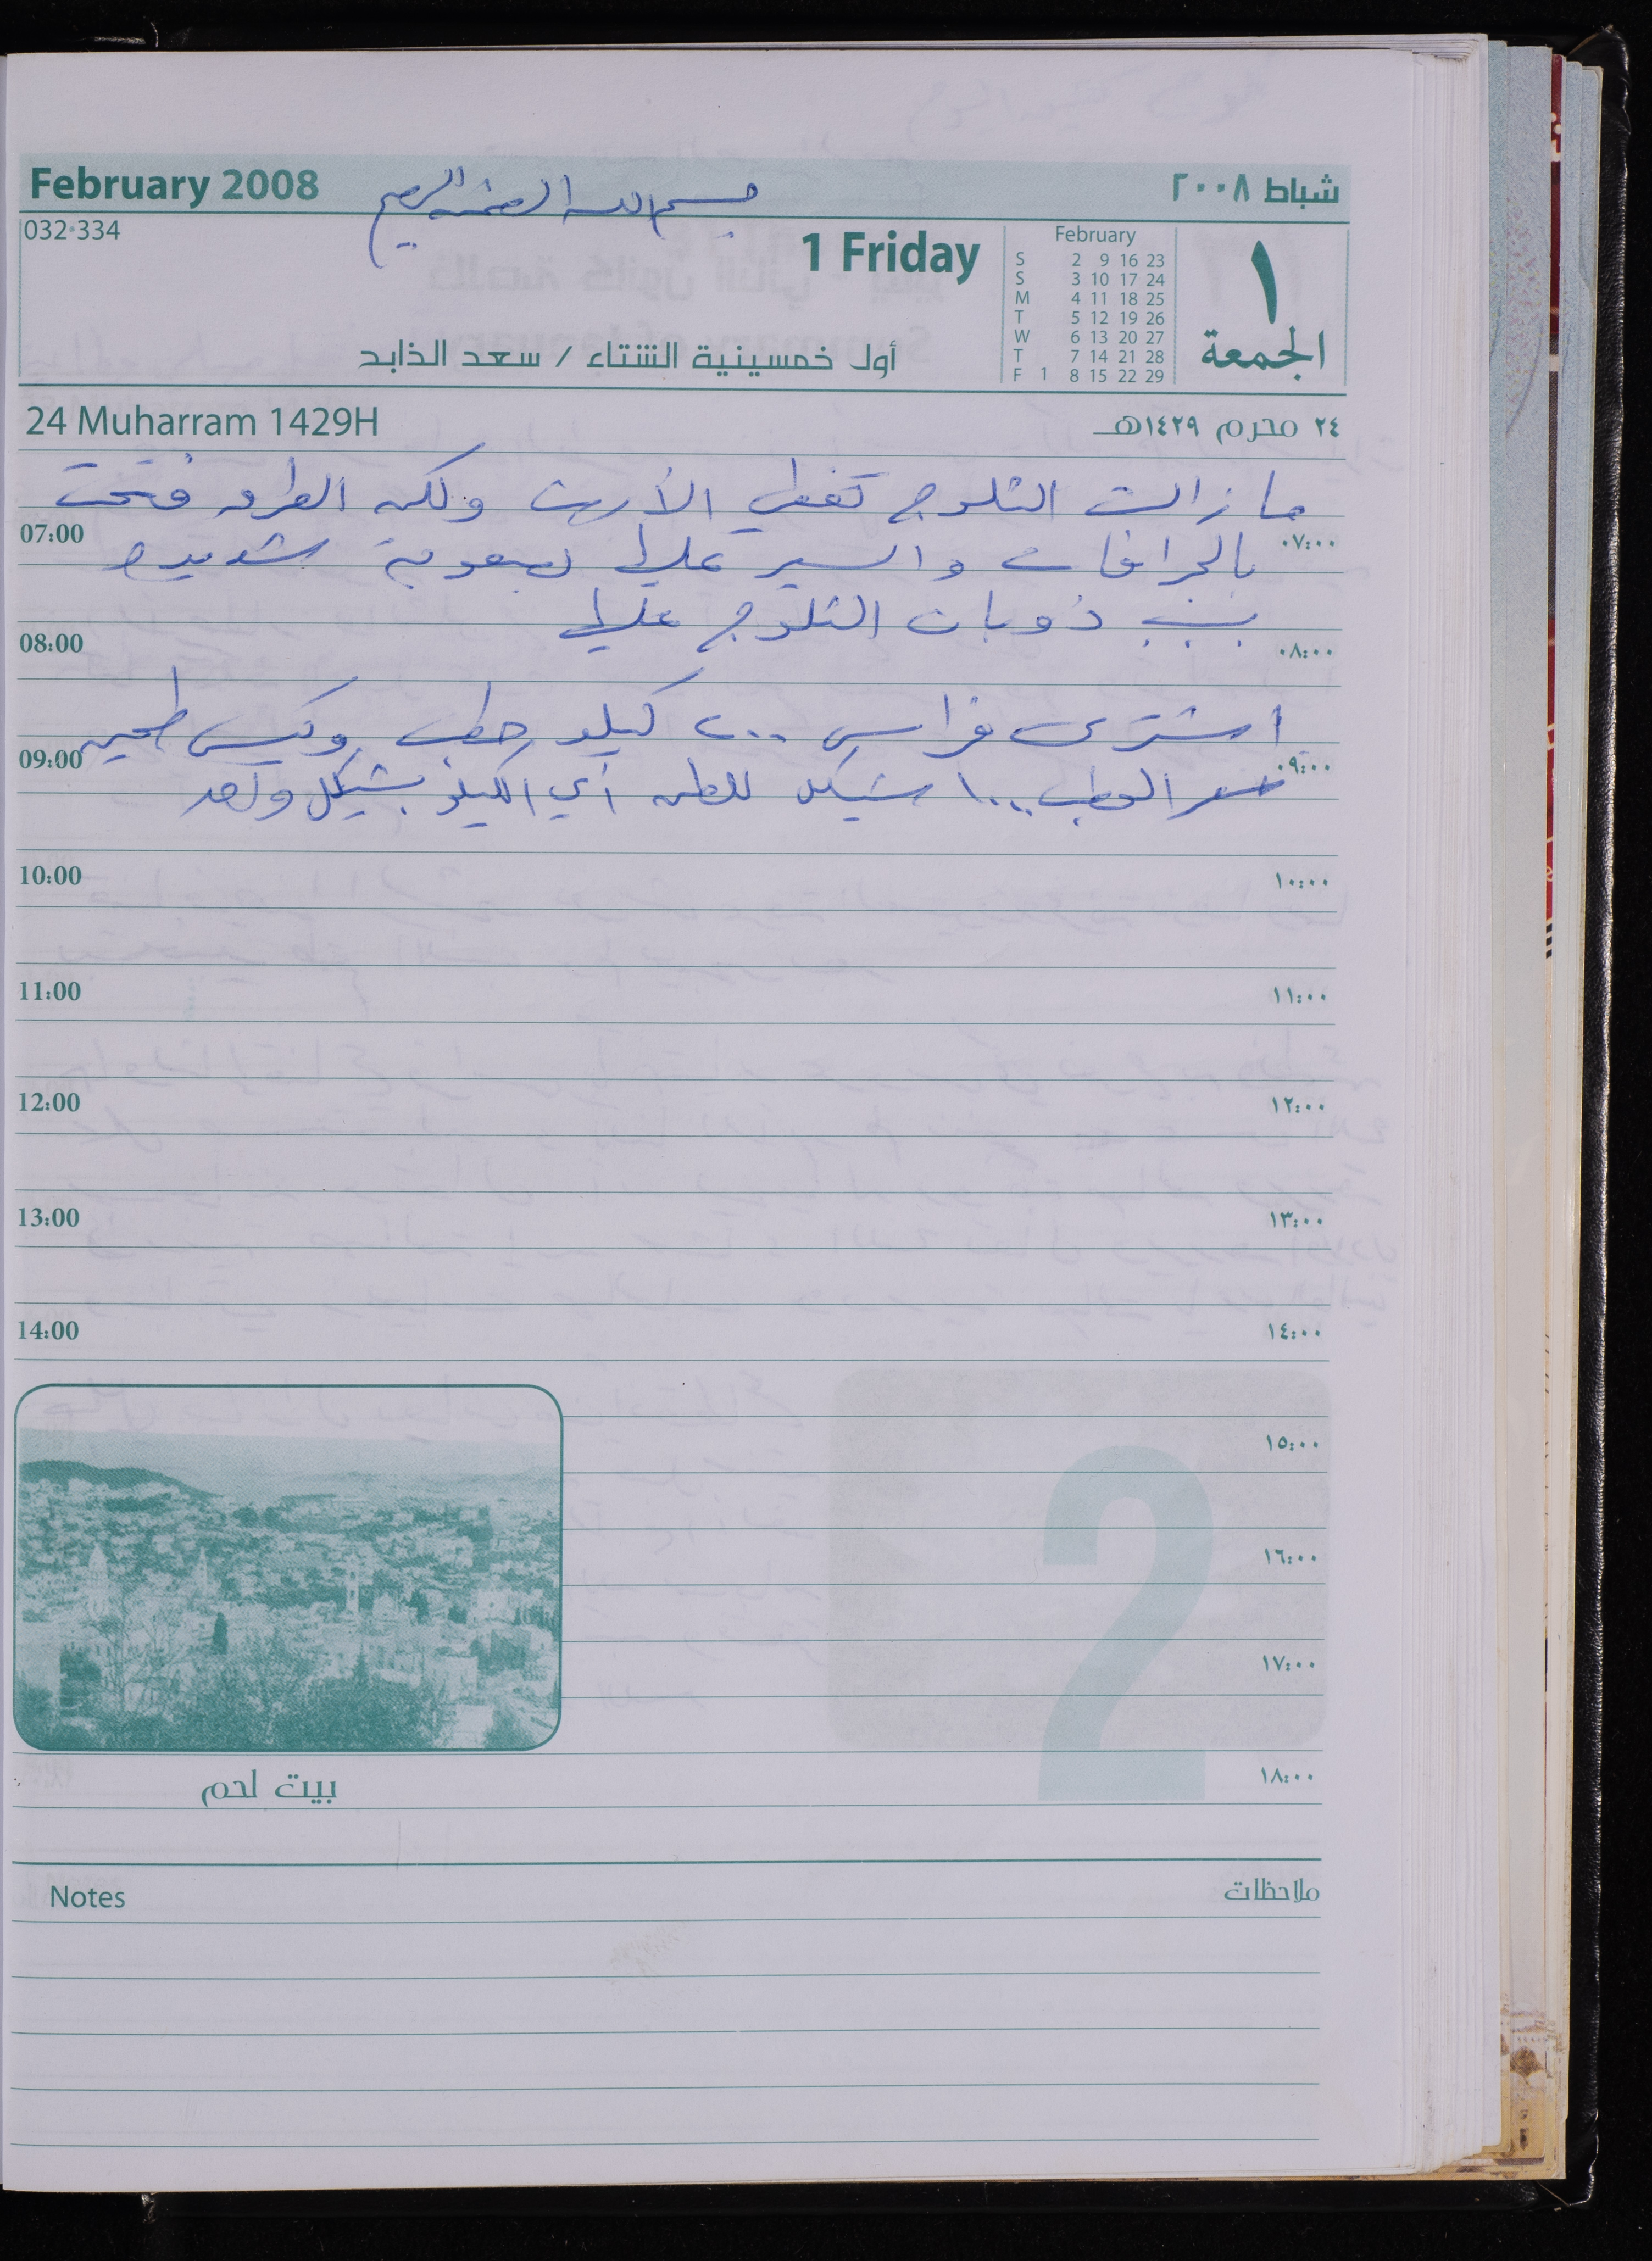 February 2008
بسم الله الرحمن الرحيم
شباط ٢٠٠٨
032·334
1 Friday
February
S 2 9 16 23
S 3 10 17 24
M 4 11 18 25
T 5 12 19 26
W 6 13 20 27
T 7 14 21 28
F 1 8 15 22 29
١
الجمعة
أول خمسينية الشتاء / سعد الذابح
24 Muharram 1429H
٢٤ محرم ١٤٢٩هـ
ما زالت الثلوج تغطي الأرض ولكن الطرق فتحت
07:00 ٠٧:٠٠
بالجرافات والسير عليها بصعوبة شديدة
بسبب ذوبان الثلوج عليها
08:00 ٠٨:٠٠
اشترى فراس ٢٠٠ كيلو حطب وكيس طحين
09:00 ٠٩:٠٠
سعر الحطب ١٠٠٠ شيكل للطن أي الكيلو بشيكل واحد
10:00 ١٠:٠٠
11:00 ١١:٠٠
12:00 ١٢:٠٠
13:00 ١٣:٠٠
14:00 ١٤:٠٠
١٥:٠٠
2
١٦:٠٠
١٧:٠٠
١٨:٠٠
بيت لحم
Notes
ملاحظات